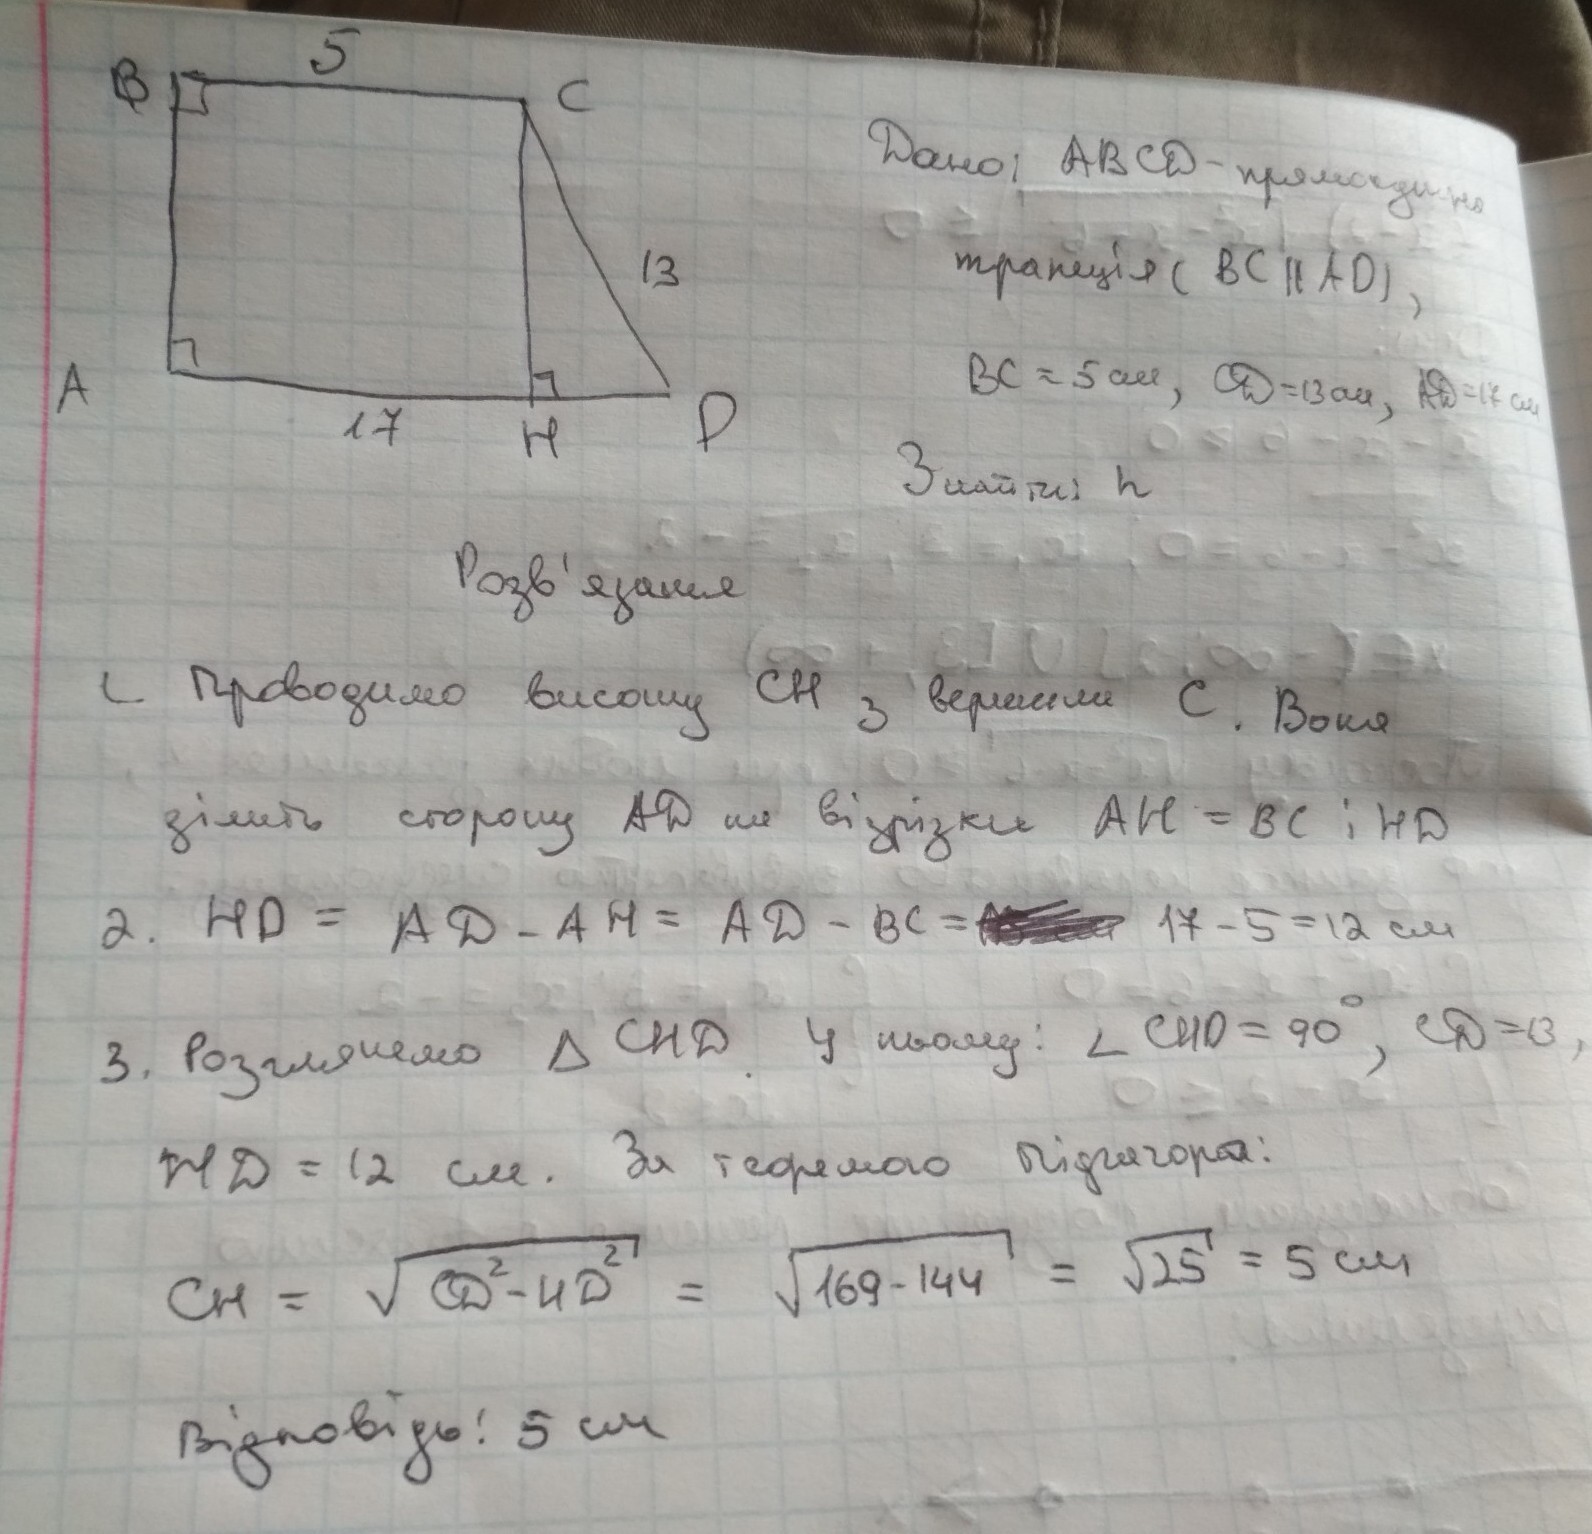 B 5 C
Дано: ABCD - прямокутна
13
трапеція (BC || AD),
A 17 H D
BC = 5 см, CD = 13 см, AD = 17 см
Знайти: h
Розв'язання
1. Проводимо висоту CH з вершини C. Вона
ділить сторону AD на відрізки AH = BC і HD
2. HD = AD - AH = AD - BC = 17 - 5 = 12 см
3. Розглянемо Δ CHD. У ньому: ∠ CHD = 90°, CD = 13,
HD = 12 см. За теоремою Піфагора:
CH = √(CD² - HD²) = √(169 - 144) = √25 = 5 см
Відповідь: 5 см